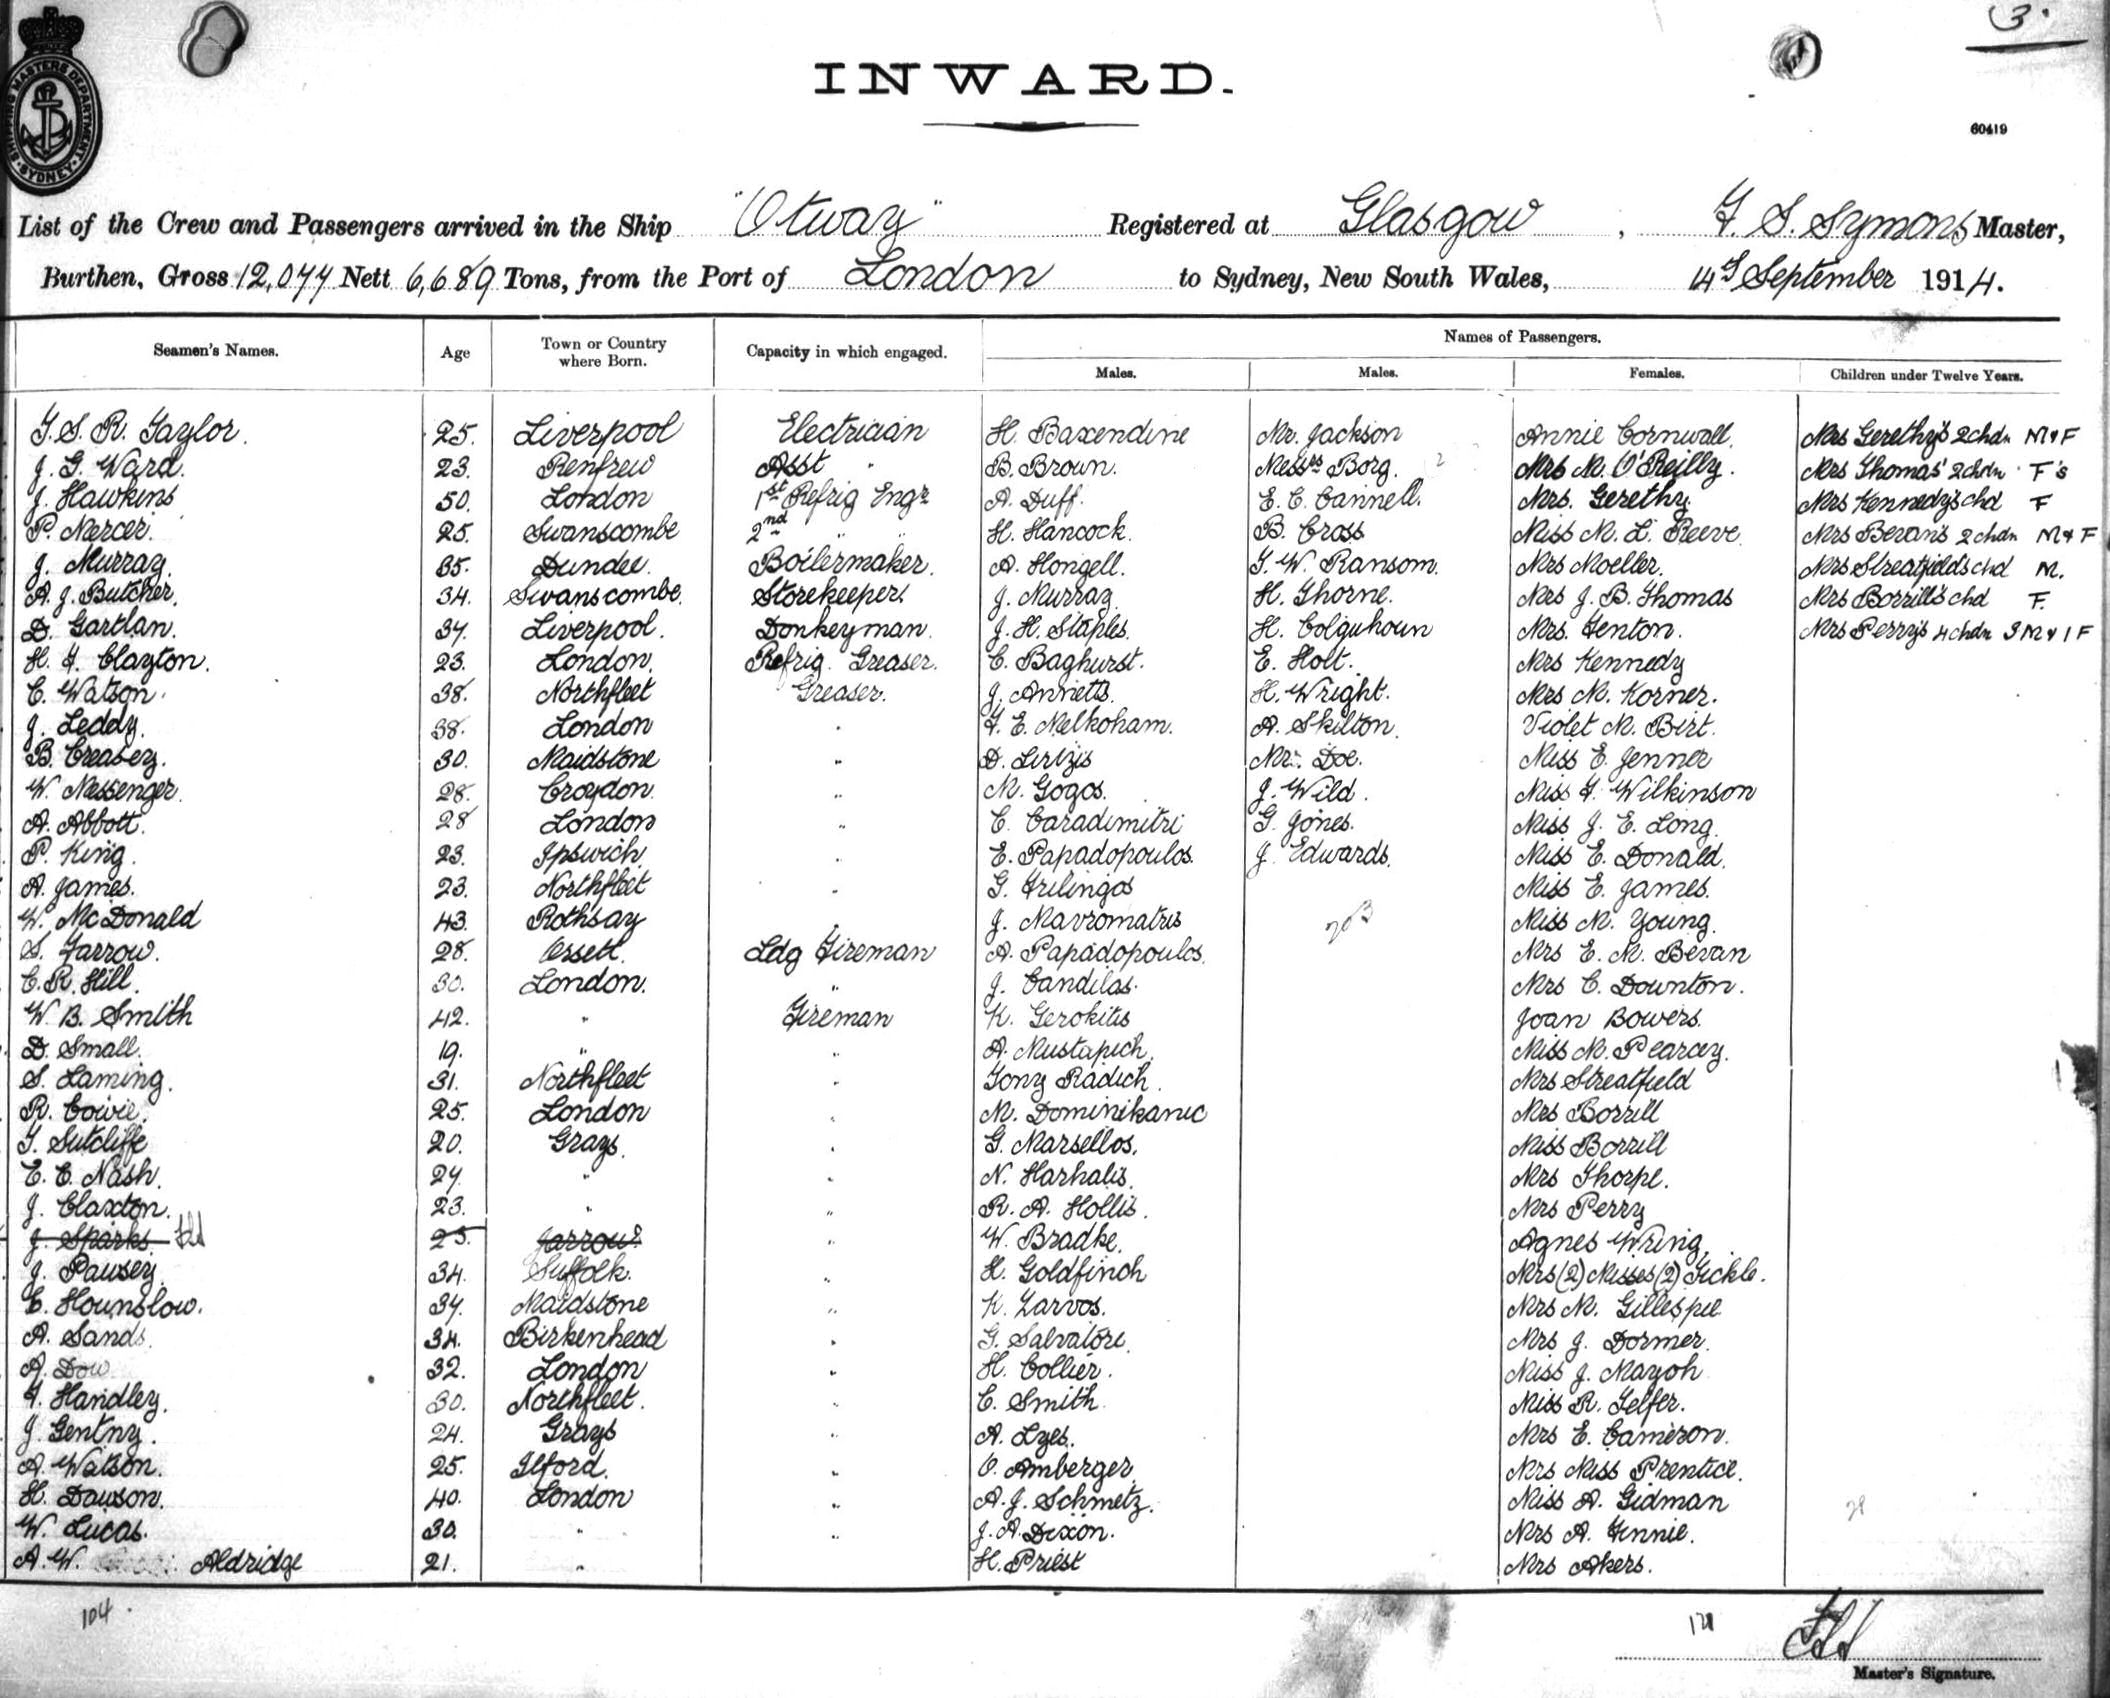 3.
INWARD.
60419
SHIPPING MASTERS DEPARTMENT · SYDNEY ·
List of the Crew and Passengers arrived in the Ship "Otway" Registered at Glasgow, F. S. Symons Master,
Burthen, Gross 12,077 Nett 6,689 Tons, from the Port of London to Sydney, New South Wales, 14th September 1914.
Names of Passengers.
Seamen's Names. Age Town or Country where Born. Capacity in which engaged. Males. Males. Females. Children under Twelve Years.
T. S. R. Taylor. 25. Liverpool Electrician H. Baxendine Mr. Jackson Annie Cornwall. Mrs Gerethy's 2 chdn M & F
J. G. Ward. 23. Renfrew Asst " B. Brown. Messrs Borg. 2 Mrs M. O'Reilly. Mrs Thomas' 2 chdn F's
J. Hawkins 50. London 1st Refrig Engr A. Duff. E. C. Cannell. Mrs. Gerethy. Mrs Kennedy's chd F
P. Mercer. 25. Swanscombe 2nd " " H. Hancock. B. Cross Miss M. L. Reeve. Mrs Bevan's 2 chdn M & F
J. Murray. 35. Dundee. Boilermaker. A. Hongell. T. W. Ransom. Mrs Moeller. Mrs Streatfields chd M.
A. J. Butcher. 34. Swanscombe. Storekeeper. J. Murray H. Thorne. Mrs J. B. Thomas Mrs Borrill's chd F.
D. Gartlan. 37. Liverpool. Donkeyman. J. H. Staples. H. Colquhoun Mrs. Fenton. Mrs Perry's 4 chdn 3 M & 1 F
H. F. Clayton. 23. London. Refrig. Greaser. C. Baghurst. E. Holt. Mrs Kennedy
C. Watson. 38. Northfleet Greaser. J. Annetts. H. Wright. Mrs M. Korner.
J. Leddy. 38. London " F. E. Melkoham. A. Skilton. Violet M. Birt.
B. Creasey. 30. Maidstone " D. Lirtzis Mr. Doe. Miss E. Jenner
W. Messenger. 28. Croydon. " M. Gogos. J. Wild. Miss F. Wilkinson
A. Abbott. 28 London " C. Caradimitri G. Jones. Miss J. E. Long.
P. King. 23. Ipswich. " E. Papadopoulos. J. Edwards. Miss E. Donald.
A. James. 23. Northfleet " G. Frilingos Miss E. James.
W. McDonald 43. Rothsay " J. Mavromatis Miss M. Young.
S. Farrow. 28. Ossett. Ldg Fireman A. Papadopoulos. Mrs E. M. Bevan
C. R. Hill. 30. London. " J. Candilas. Mrs C. Downton.
W. B. Smith 42. " Fireman K. Gerokitis Joan Bowers.
D. Small. 19. " " A. Mustapich. Miss M. Pearcey.
S. Laming. 31. Northfleet " Tony Radich. Mrs Streatfield
R. Cowie. 25. London " M. Dominikanic Mrs Borrill
T. Sutcliffe 20. Grays. " G. Marsellos. Miss Borrill
E. C. Nash. 27. " " N. Harhalis. Mrs Thorpe.
J. Claxton. 23. " " R. A. Hollis. Mrs Perry
J. Sparks. 25. Jarrow. " W. Bradke. Agnes Wring.
J. Pawsey. 34. Suffolk. " H. Goldfinch Mrs (2) Misses (2) Tickle.
C. Hounslow. 37. Maidstone " K. Zarvos. Mrs M. Gillespie
A. Sands. 34. Birkenhead " G. Salvatore. Mrs J. Dormer.
A. Dow 32. London " H. Collier. Miss J. Mayoh
F. Handley. 30. Northfleet. " C. Smith Miss R. Telfer.
J. Gentny. 24. Grays " A. Lyes. Mrs E. Cameron.
A. Watson. 25. Ilford. " O. Amberger. Mrs Miss Prentice.
H. Dawson. 40. London " A. J. Schmetz. Miss A. Gidman
W. Lucas. 30. " " J. A. Dixon. Mrs A. Finnie.
A. W. Aldridge 21. " H. Priest Mrs Akers.
104
Master's Signature.